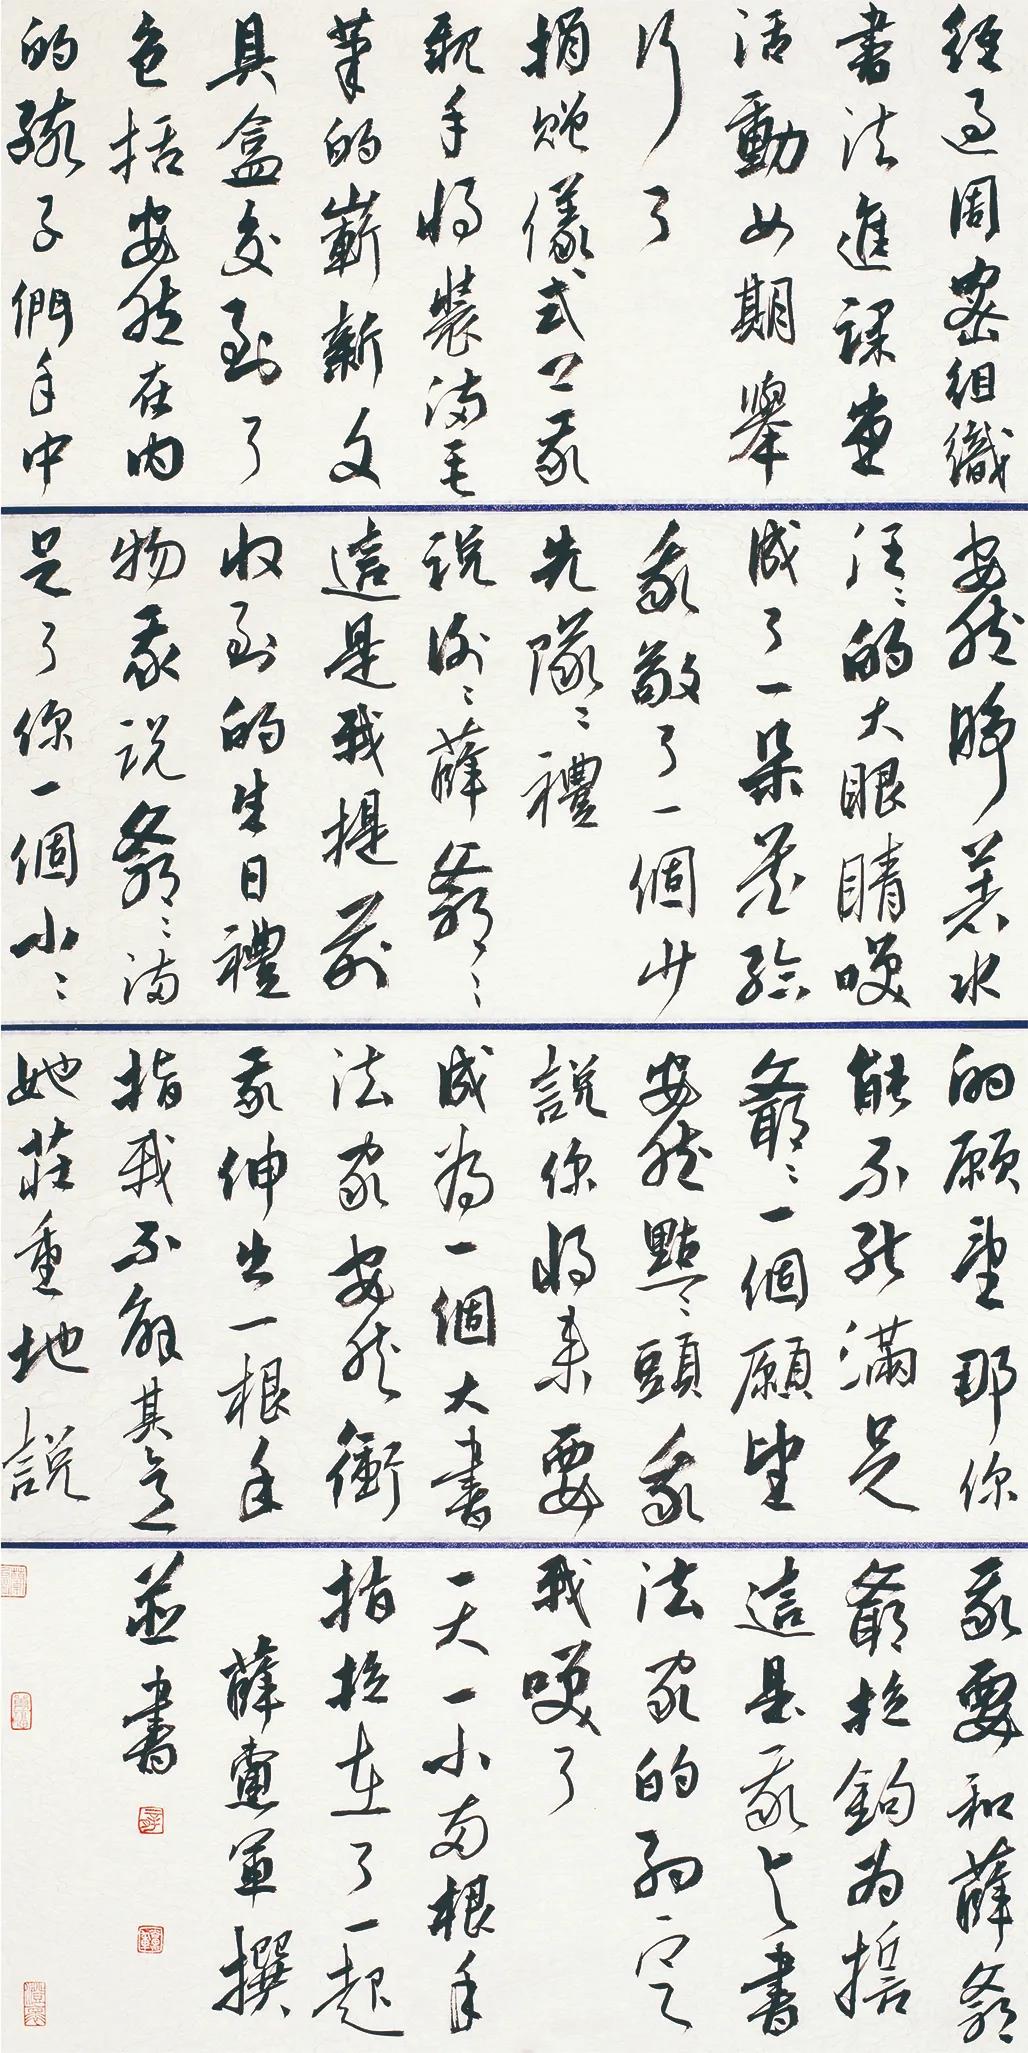 經過周密組織
書法進課堂
活動如期舉
行了
捐贈儀式上我
親手將裝滿毛
筆的嶄新文
具盒交到了
包括安然在內
的孩子們手中
安然睜著水
汪汪的大眼睛笑
成了一朵花給
我敬了一個少
先隊隊禮
說謝謝薛爺爺
這是我提前
收到的生日禮
物我說爺爺滿
足了你一個小小
的願望那你
能不能滿足
爺爺一個願望
安然點點頭我
說你將來要
成為一個大書
法家安然衝
我伸出一根手
指我不解其意
她莊重地說
我要和薛爺爺
拉鉤為誓
這是我與書
法家的約定
我笑了
一大一小兩根手
指拉在了一起
薛憲軍撰
並書